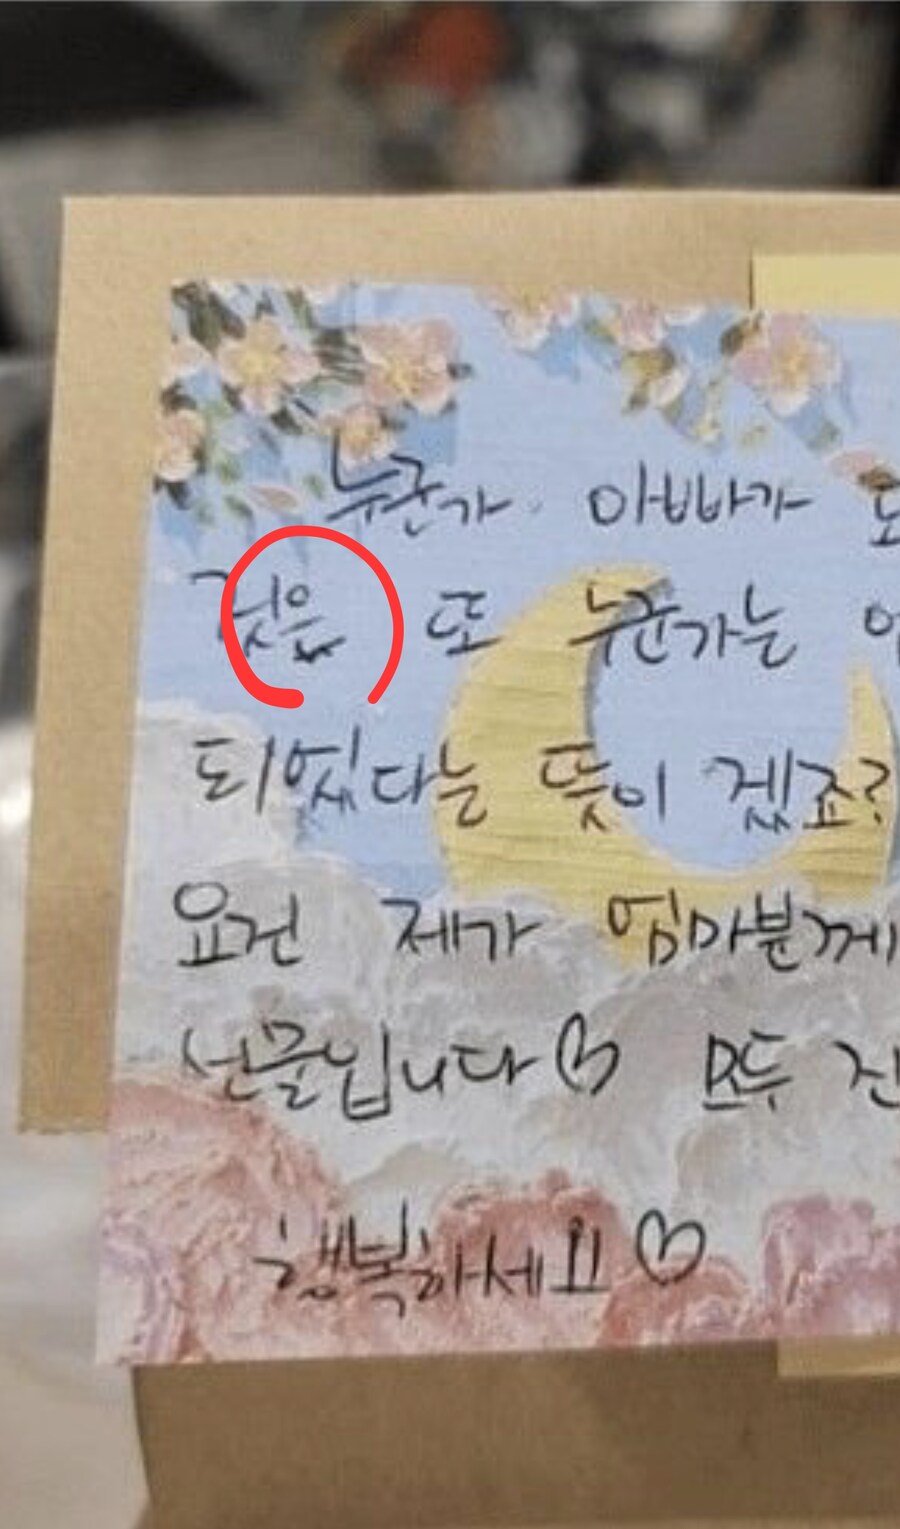 누군가 아빠가
것은 또 누군가는
되었다는 뜻이 겠죠?
요건 제가 엄마분께
선물입니다♡ 모두
행복하세요♡